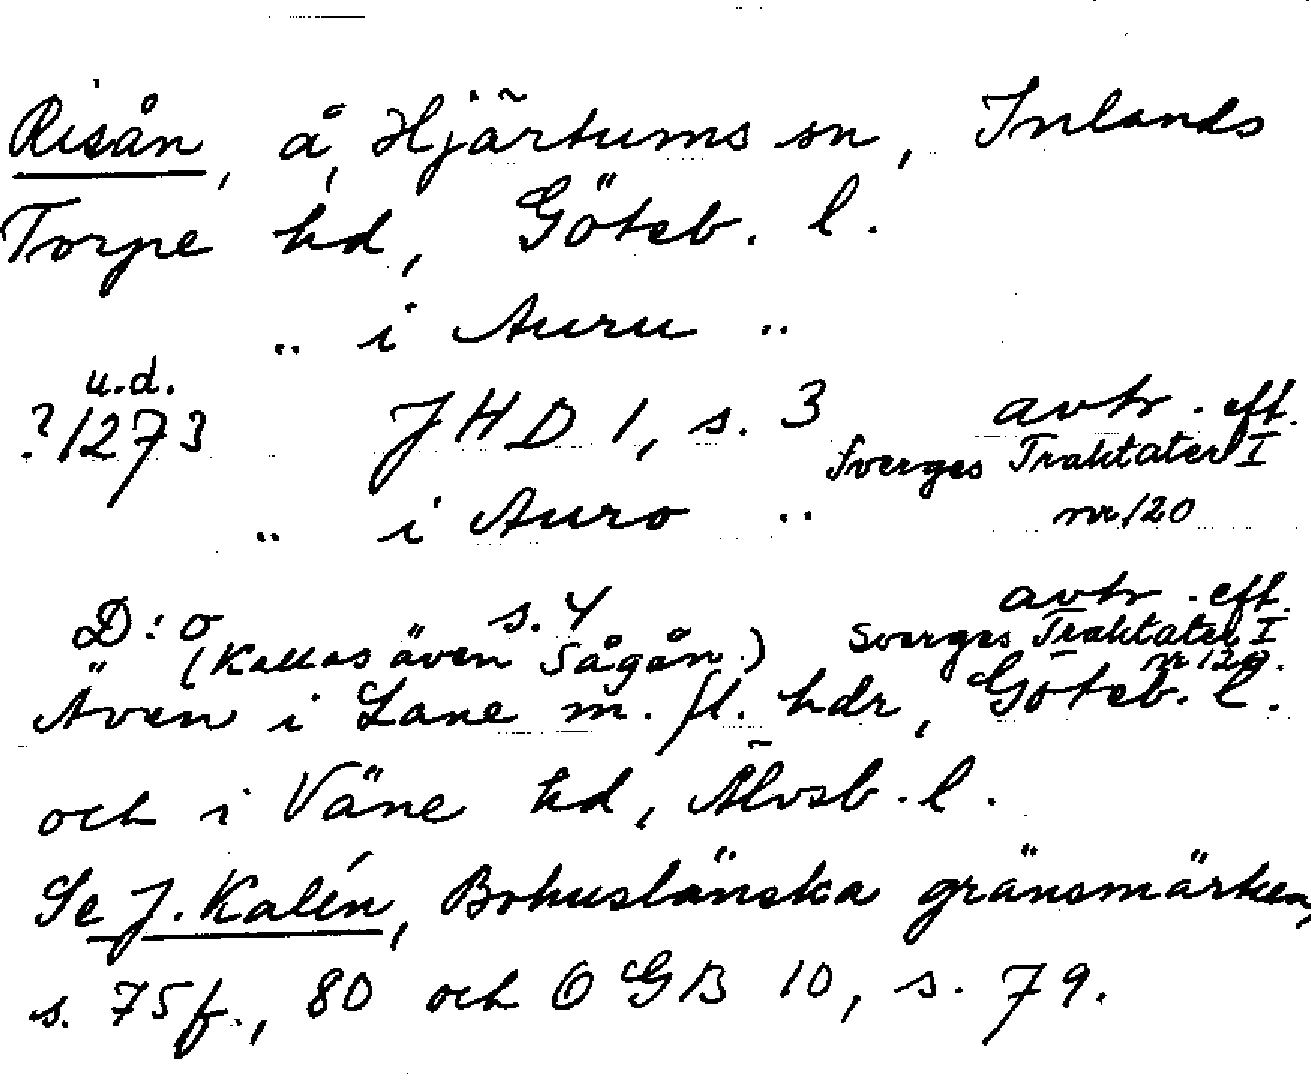 Risån, å, Hjärtums sn, Inlands
Torpe hd, Göteb. l.
.. i Auru ..
u.d.
?1273 JHD 1, s. 3 avtr. eft.
Sverges Traktater I
.. i Auro .. nr 120
D:o s. 4 avtr. eft.
(Kallas även Sågån.) Sverges Traktater I
nr 120.
Även i Lane m. fl. hdr, Göteb. l.
och i Väne hd, Älvsb. l.
Se J. Kalén, Bohuslänska gränsmärken,
s. 75 f., 80 och OGB 10, s. 79.